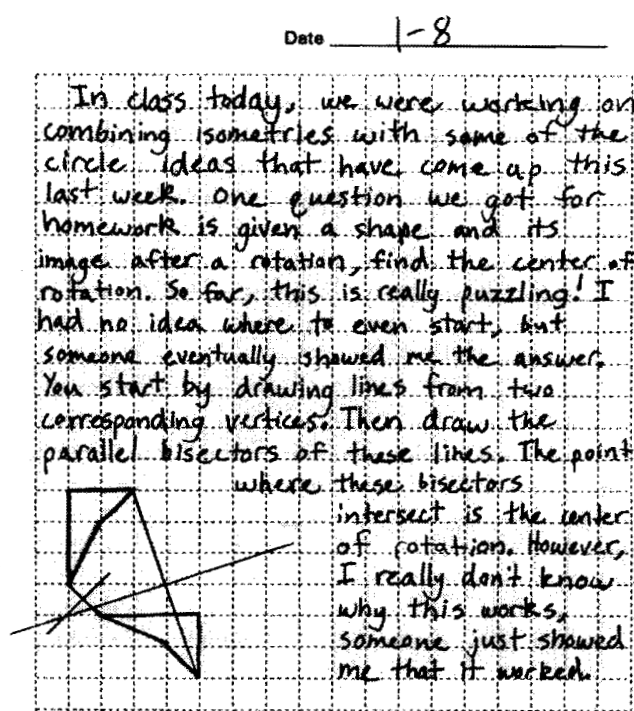 Date 1-8
In class today, we were working on
combining isometries with some of the
circle ideas that have come up this
last week. One question we got for
homework is given a shape and its
image after a rotation, find the center of
rotation. So far, this is really puzzling! I
had no idea where to even start, but
someone eventually showed me the answer.
You start by drawing lines from two
corresponding vertices. Then draw the
parallel bisectors of these lines. The point
where these bisectors
intersect is the center
of rotation. However,
I really don't know
why this works,
someone just showed
me that it worked.